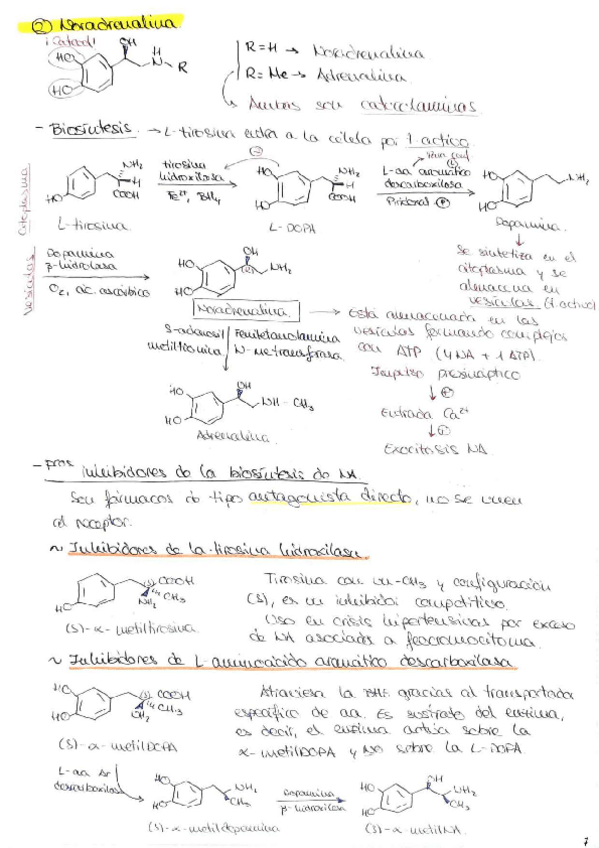 ② Noradrenalina
¡Catecol!
OH
HO
HO
N-R
H
R = H → Noradrenalina
R = Me → Adrenalina
Ambas son catecolaminas
- Biosíntesis. → L-tirosina entra a la célula por T. activo.
Citoplasma
NH₂
H
COOH
HO
L-tirosina
tirosina
hidroxilasa
Fe²⁺, BH₄
HO
HO
NH₂
H
COOH
L-DOPA
L-aa aromático
descarboxilasa
Piridoxal
HO
HO
NH₂
Dopamina
Se sintetiza en el
citoplasma y se
almacena en
vesículas (T. activo)
Vesículas
Dopamina
β-hidroxilasa
O₂, ác. ascórbico
HO
HO
OH
(R)
NH₂
Noradrenalina
→ Está almacenada en las
vesículas formando complejos
con ATP (4NA + 1ATP).
Impulso presináptico
↓ ⊕
Entrada Ca²⁺
↓ ⊕
Exocitosis NA
S-adenosil
metiltionina
Feniletanolamina
N-metransferasa
HO
HO
OH
NH-CH₃
Adrenalina
- Inhibidores de la biosíntesis de NA
Son fármacos de tipo antagonista directo, no se unen
al receptor.
~ Inhibidores de la tirosina hidroxilasa
HO
(S)
COOH
CH₃
NH₂
(S)-α-metiltirosina
Tirosina con un -CH₃ y configuración
(S), es un inhibidor competitivo.
Uso en crisis hipertensivas por exceso
de NA asociadas a feocromocitoma.
~ Inhibidores de L-aminoácido aromático descarboxilasa
HO
HO
(S)
COOH
CH₃
(S)-α-metilDOPA
Atraviesa la BHE gracias al transportador
específico de aa. Es sustrato del enzima,
es decir, el enzima actúa sobre la
α-metilDOPA y NO sobre la L-DOPA
L-aa Ar
descarboxilasa
HO
HO
NH₂
CH₃
(S)-α-metildopamina
Dopamina
β-hidroxilasa
HO
HO
OH
NH₂
CH₃
(S)-α-metilNA
7